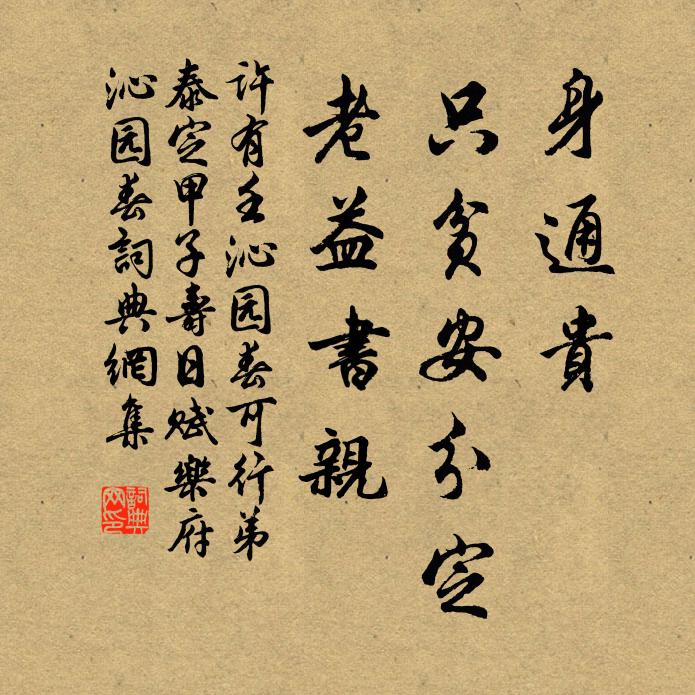 身通貴
只貧安分定
老益書親
許有壬沁园春可行弟
泰定甲子壽日賦樂府
沁园春詞典網集
詞典
网印